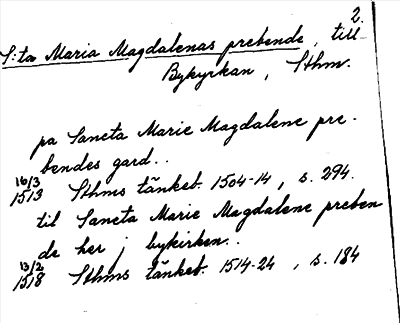 2.
S:ta Maria Magdalenas prebende, till
Bykyrkan, Sthm.
pa Sancta Marie Magdalene pre-
bendes gard..
16/3
1513 Sthms tänkeb. 1504-14, s. 294.
til Sancta Marie Magdalene preben
de her j bykirken..
13/2
1518 Sthms tänkeb. 1514-24, s. 184